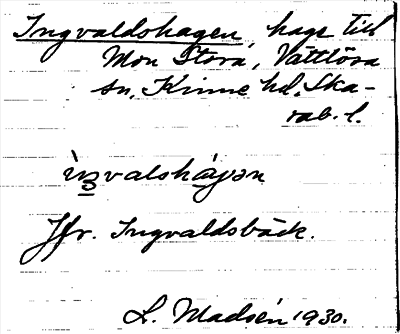 Ingvaldshagen, hage till
Mon Stora, Vättlösa
sn, Kinne hd, Ska-
rab. l.
ìŋvalshá̱γən
Jfr. Ingvaldsbäck.
L. Madsén 1930.